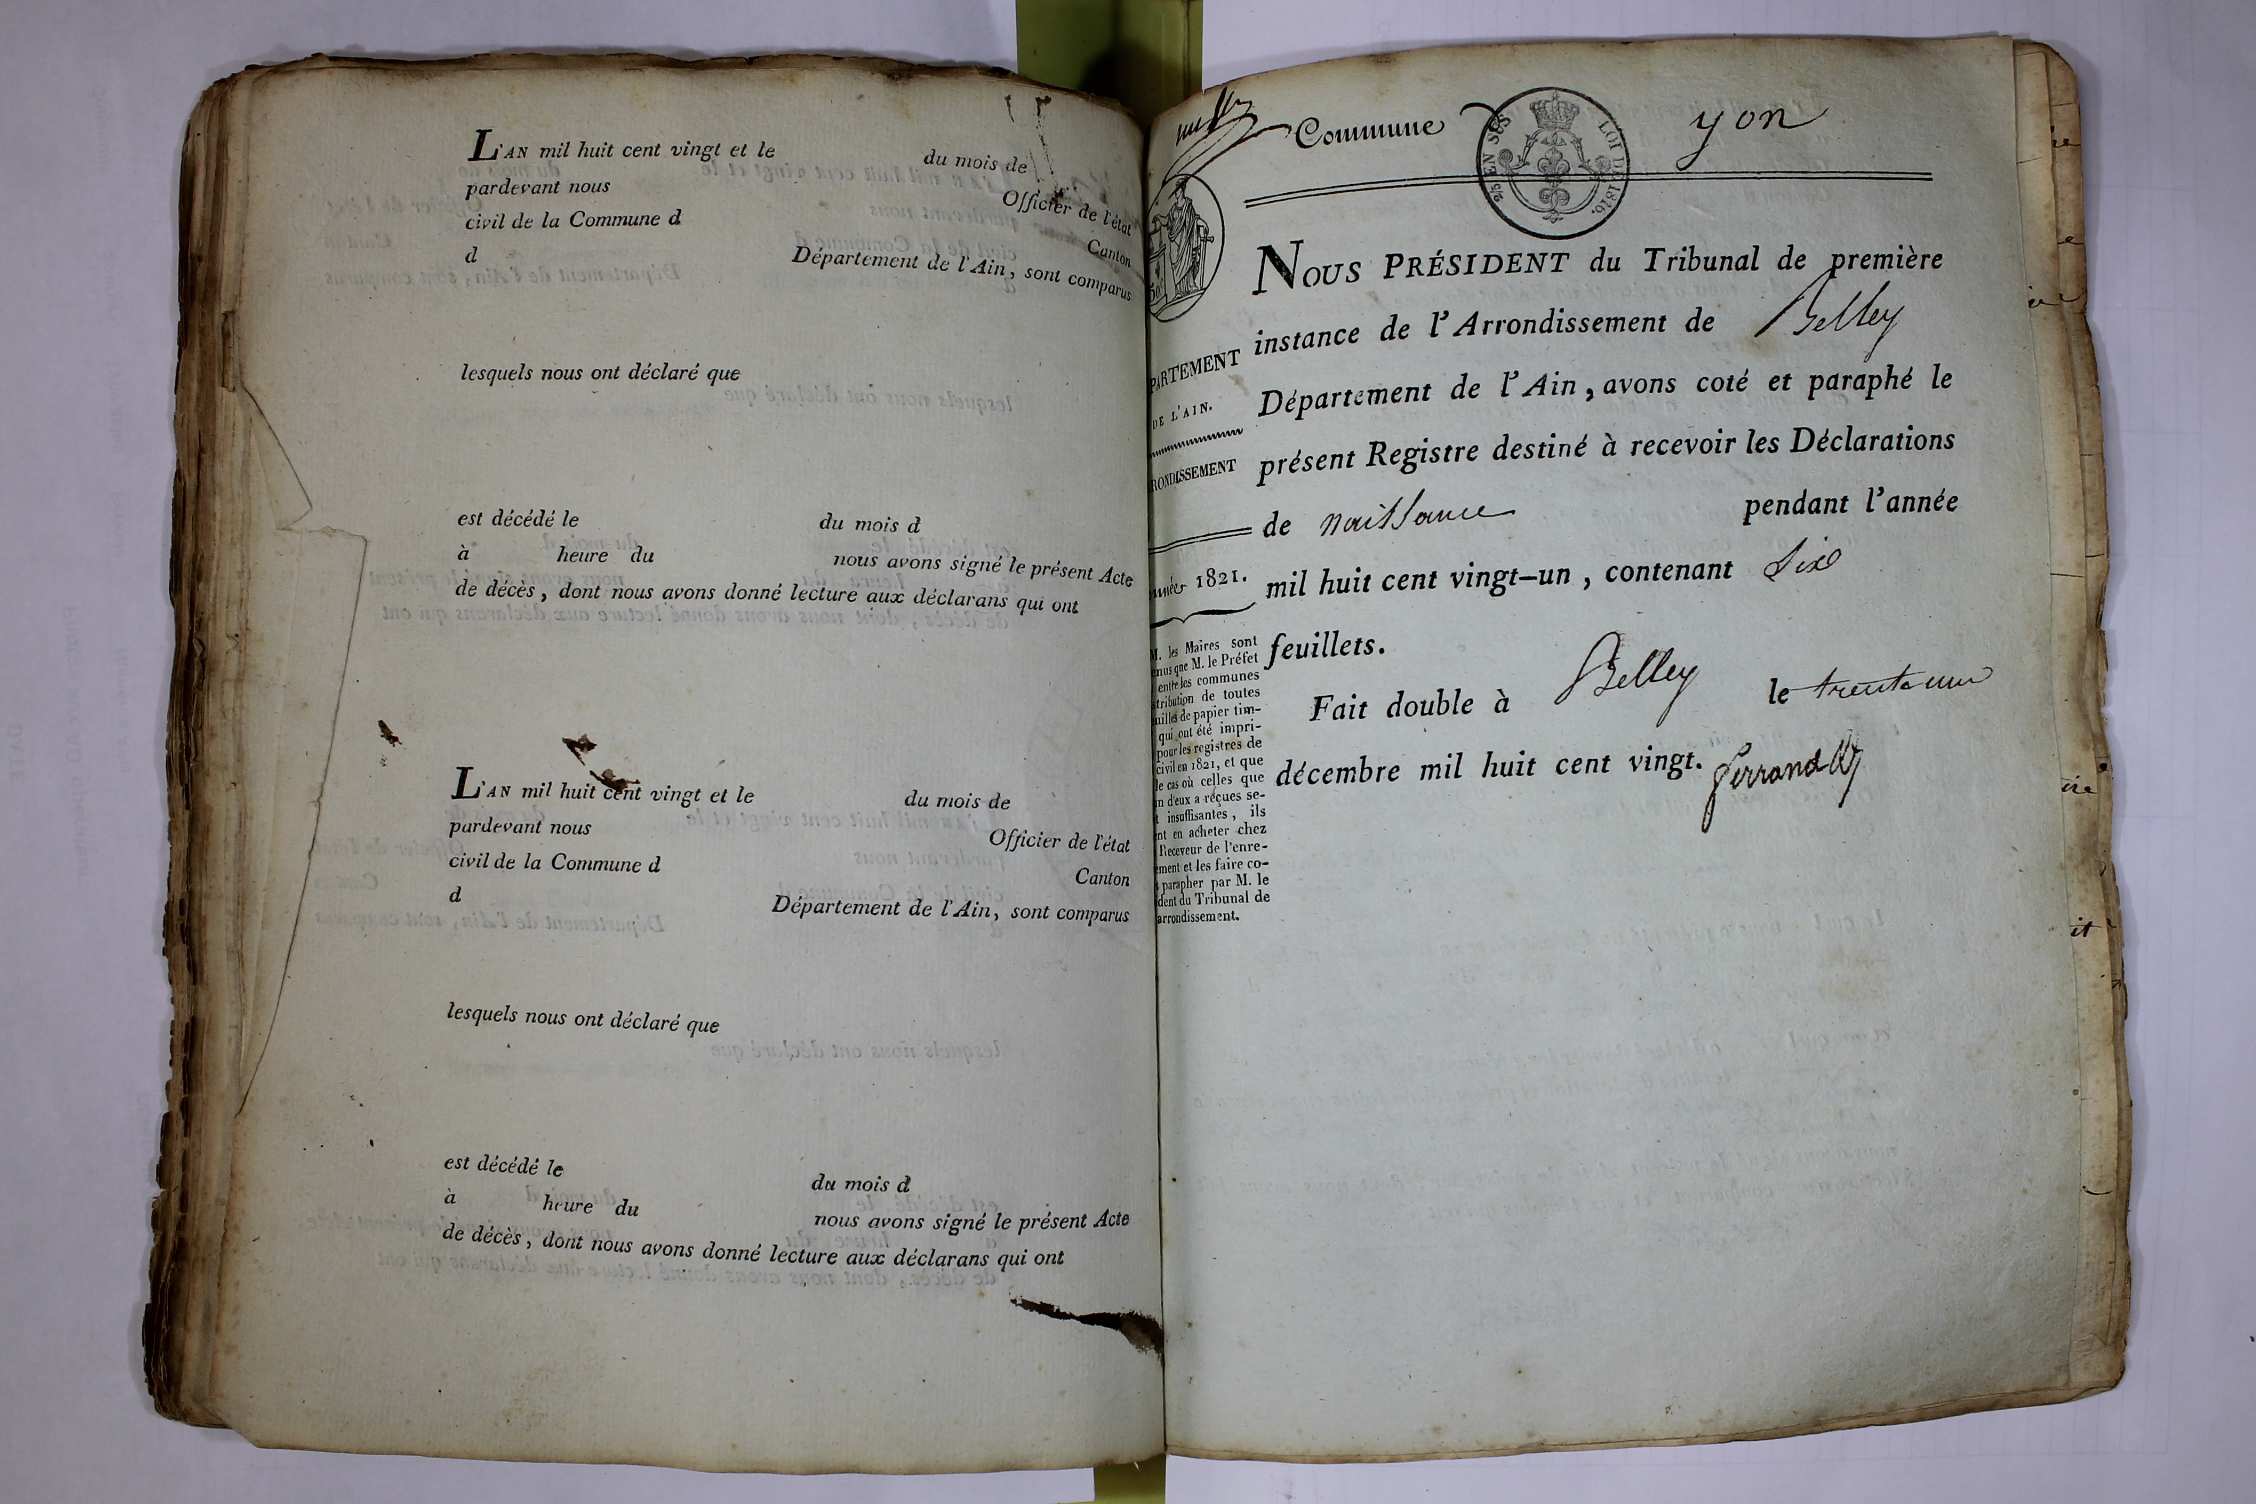 L'AN mil huit cent vingt et le du mois de
pardevant nous Officier de l'état
civil de la Commune d Canton
d Département de l'Ain, sont comparus
lesquels nous ont déclaré que
est décédé le du mois d
à heure du nous avons signé le présent Acte
de décès, dont nous avons donné lecture aux déclarans qui ont
L'AN mil huit cent vingt et le du mois de
pardevant nous Officier de l'état
civil de la Commune d Canton
d Département de l'Ain, sont comparus
lesquels nous ont déclaré que
est décédé le du mois d
à heure du nous avons signé le présent Acte
de décès, dont nous avons donné lecture aux déclarans qui ont
Commune yon
EN SUS LOI DE 1816.
PARTEMENT
DE L'AIN.
RONDISSEMENT
1821.
M. les Maires sont
nus que M. le Préfet
entre les communes
tribution de toutes
uilles de papier tim-
qui ont été impri-
pour les registres de
civil en 1821, et que
le cas où celles que
n d'eux a reçues se-
t insuffisantes, ils
nt en acheter chez
Receveur de l'enre-
ment et les faire co-
parapher par M. le
dent du Tribunal de
arrondissement.
NOUS PRÉSIDENT du Tribunal de première
instance de l'Arrondissement de Belley
Département de l'Ain, avons coté et paraphé le
présent Registre destiné à recevoir les Déclarations
de naissance pendant l'année
mil huit cent vingt-un, contenant Six
feuillets.
Fait double à Belley le trente un
décembre mil huit cent vingt. ferrand